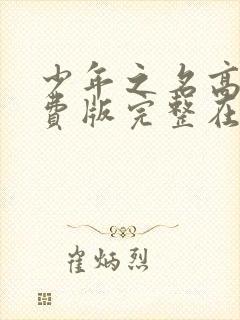 少年之名高
费版完整在
崔炳烈